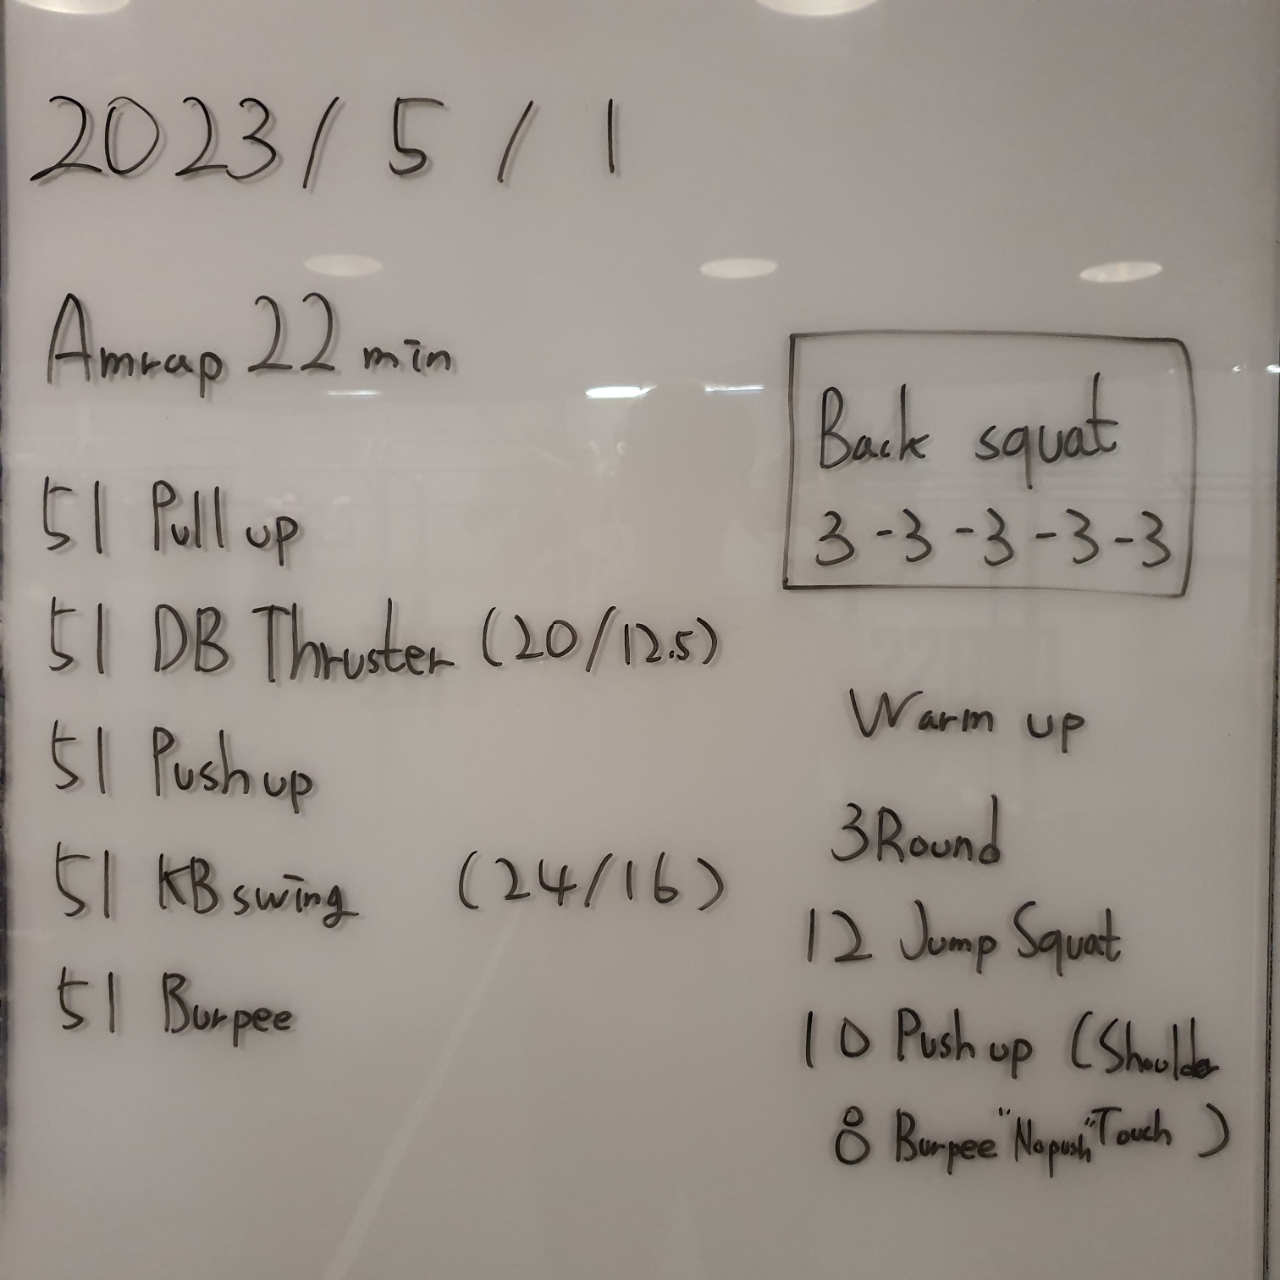 2023/5/1
Amrap 22 min
51 Pull up
51 DB Thruster (20/12.5)
51 Push up
51 KB swing (24/16)
51 Burpee
Back squat
3-3-3-3-3
Warm up
3 Round
12 Jump Squat
10 Push up (Shoulder
8 Burpee "No push" Touch )